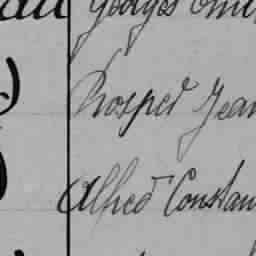 Georges
Prosper Jean
Alfred Constan